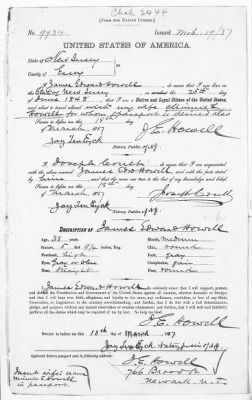 Chek 2444
[FORM FOR NATIVE CITIZEN.]
No. 9934 Issued Mch 19/87
UNITED STATES OF AMERICA.
STATE OF New Jersey
COUNTY OF Essex
I, James Edward Howell, do swear that I was born in
New Jersey on the 25th day of
June 1848; that I am a Native and Loyal Citizen of the United States,
and about to travel abroad with my wife Minnie E
Howell for whom passport is desired also
Sworn to before me this 18th day
of March 1887 J. E. Howell
Jay Ten Eyck
Notary Public of N.J.
I, Joseph Coult, do swear that I am acquainted
with the above-named James Edw Howell and with the facts stated by
him, and that the same are true to the best of my knowledge and belief.
Sworn to before me this 18th day
of March 1887 Joseph Coult
Jay Ten Eyck
Notary Public of N.J.
DESCRIPTION OF James Edward Howell
Age, 38 years Mouth, medium
Stature, 5 feet inches, Eng. Chin, round
Forehead, high Hair, gray
Eyes, Complexion, fair
Nose, straight Face, round
I, James Edward Howell, do solemnly swear that I will support, protect,
and defend the Constitution and Government of the United States against all enemies, whether domestic or foreign;
and that I will bear true faith, allegiance, and loyalty to the same, any ordinance, resolution, or law of any State,
Convention, or Legislature to the contrary notwithstanding; and further, that I do this with a full determination,
pledge, and purpose, without any mental reservation or evasion whatsoever; and further, that I will well and faithfully
perform all the duties which may be required of me by law. So help me God.
J. E. Howell
Sworn to before me this 18th day of March 1887
Jay Ten Eyck Notary Public of N.J.
Applicant desires passport to be sent to following address:
J. E. Howell
766 Broad St
Newark N.J.
Insert wife's name
Minnie E Howell
in passport